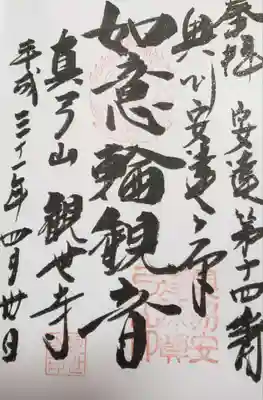 奉拝 安達第十四番
奥州安達ヶ原
如意輪観音
真弓山 観世寺
平成三十一年四月廿日